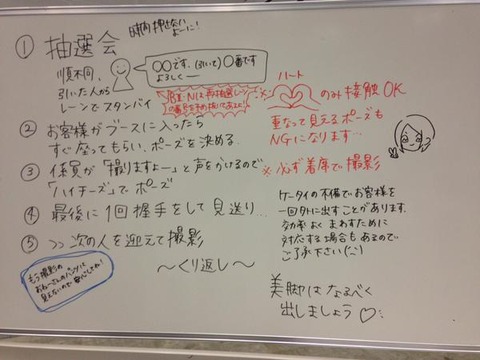 ① 抽選会
時間押せないよーに!
順不同、
引いた人から
レーンでスタンバイ
〇〇です。(引いて)〇番です
よろしくー
ハート
のみ接触OK
重なって見えるポーズも
NGになります…
② お客様がブースに入ったら
すぐ座ってもらい、ポーズを決める
※必ず着席で撮影
③ 係員が「撮りますよー」と声をかけるので
「ハイチーズ」でポーズ
④ 最後に1回握手をして見送り…
⑤ 次の人を迎えて撮影
〜くり返し〜
ケータイの不備でお客様を
一回外に出すことがあります。
効率よくまわすために
対応する場合もあるので
ご了承下さい(^^)
美脚はなるべく
出しましょう♡